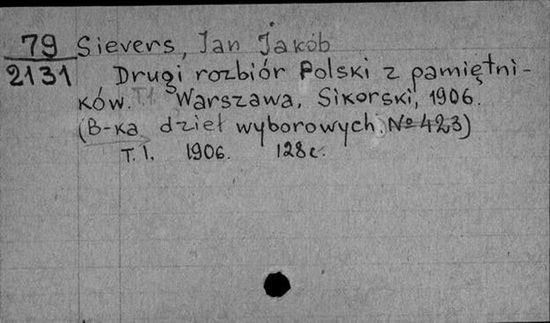 79 Sievers, Jan Jakób
2131 Drugi rozbiór Polski z pamiętni-
ków. T.1. Warszawa, Sikorski, 1906.
(B-ka dzieł wyborowych. № 423)
T. 1. 1906. 128 c.